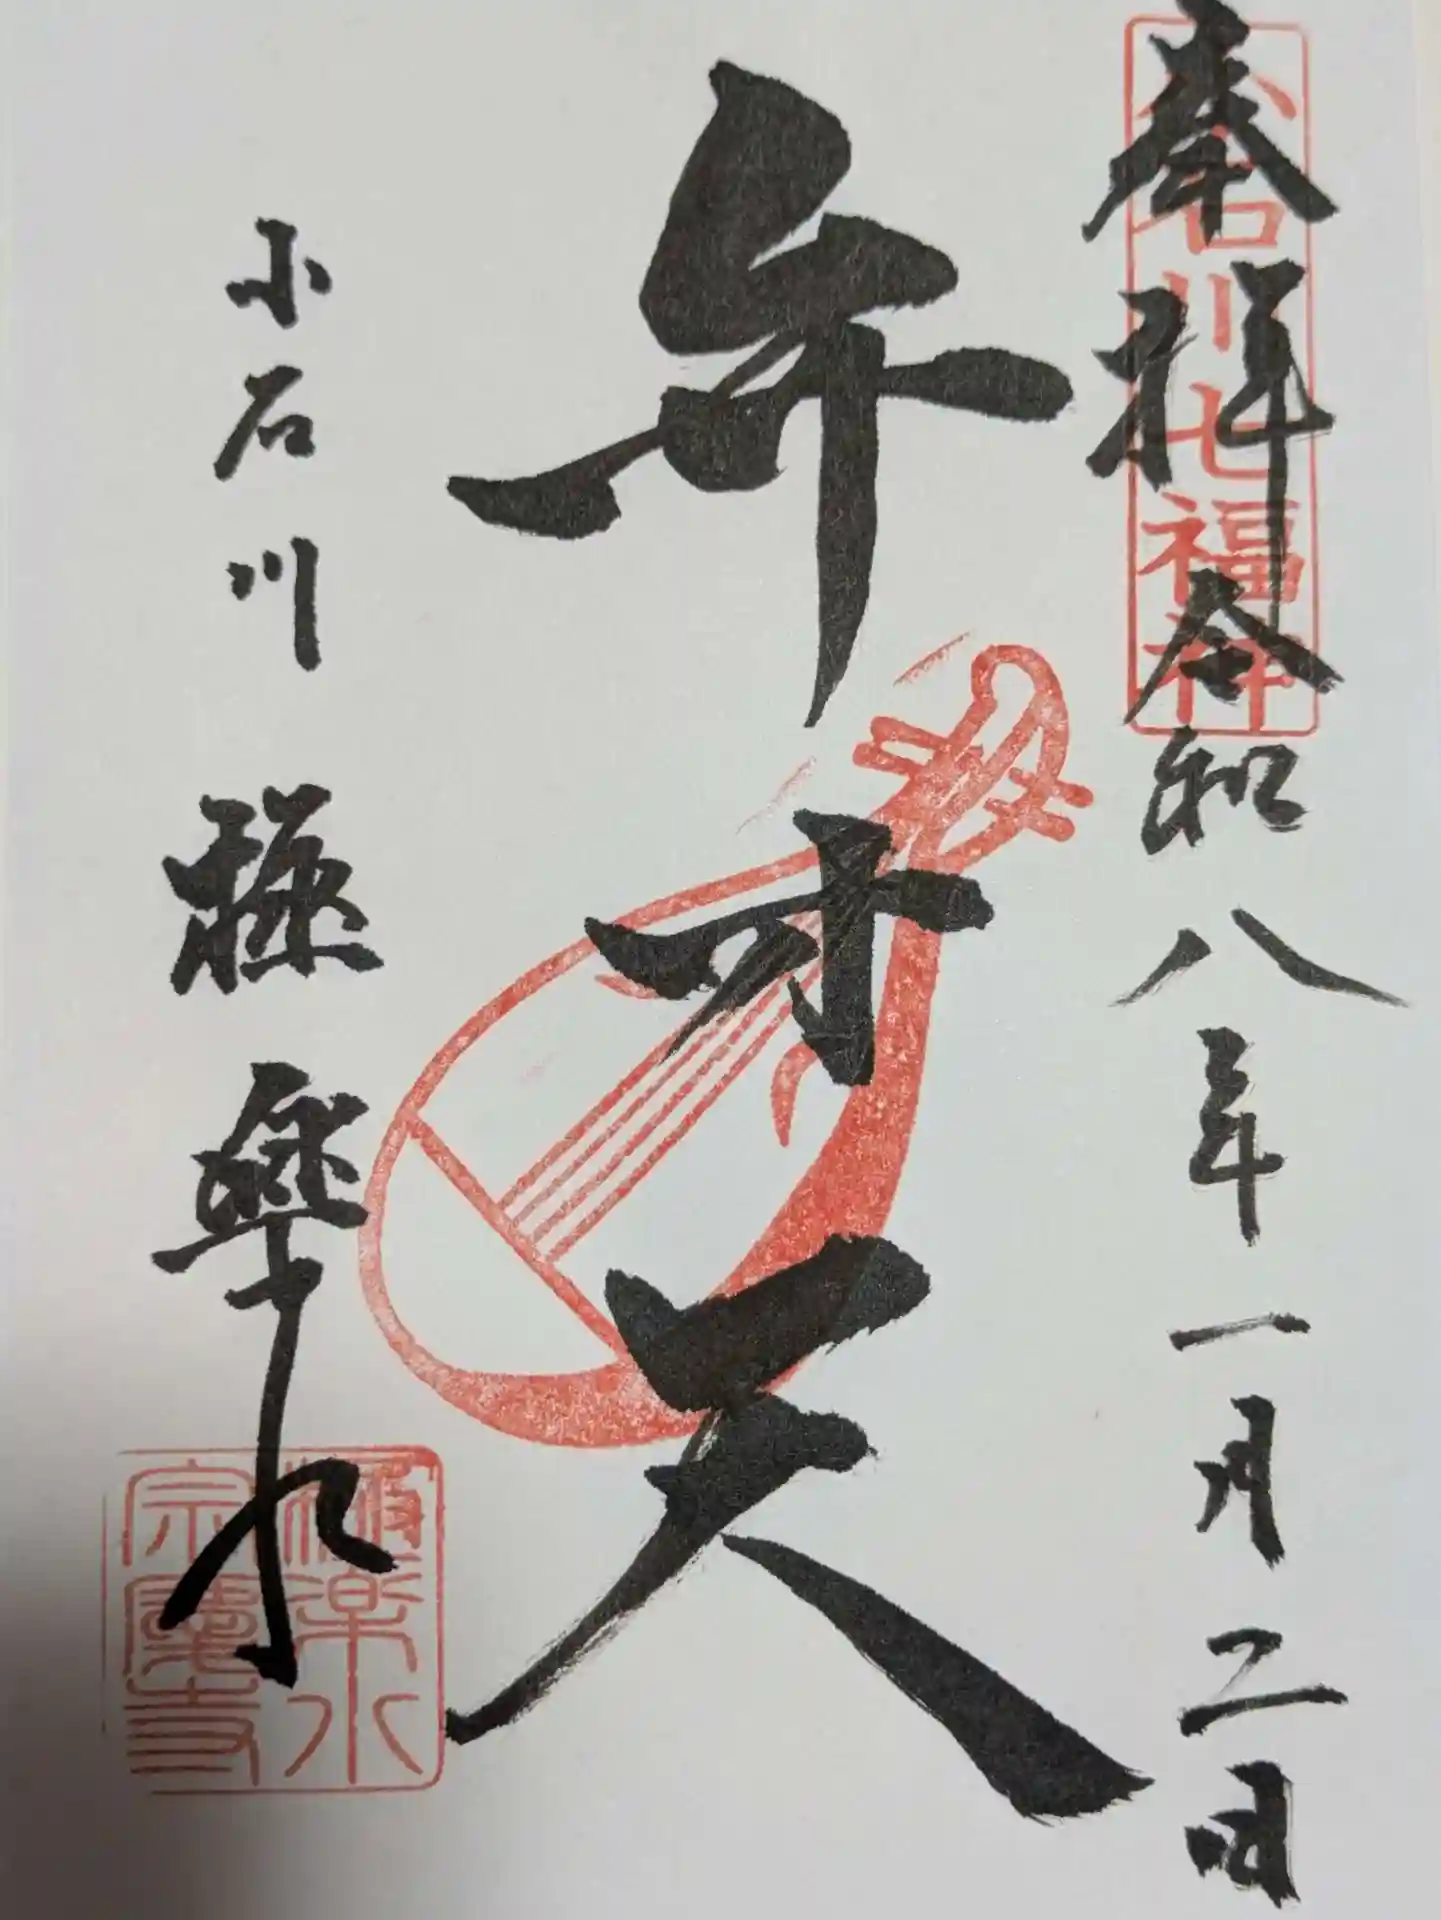 奉拝 令和八年一月二日
小石川七福神
弁才天
小石川 極樂水
極楽水
宗慶寺